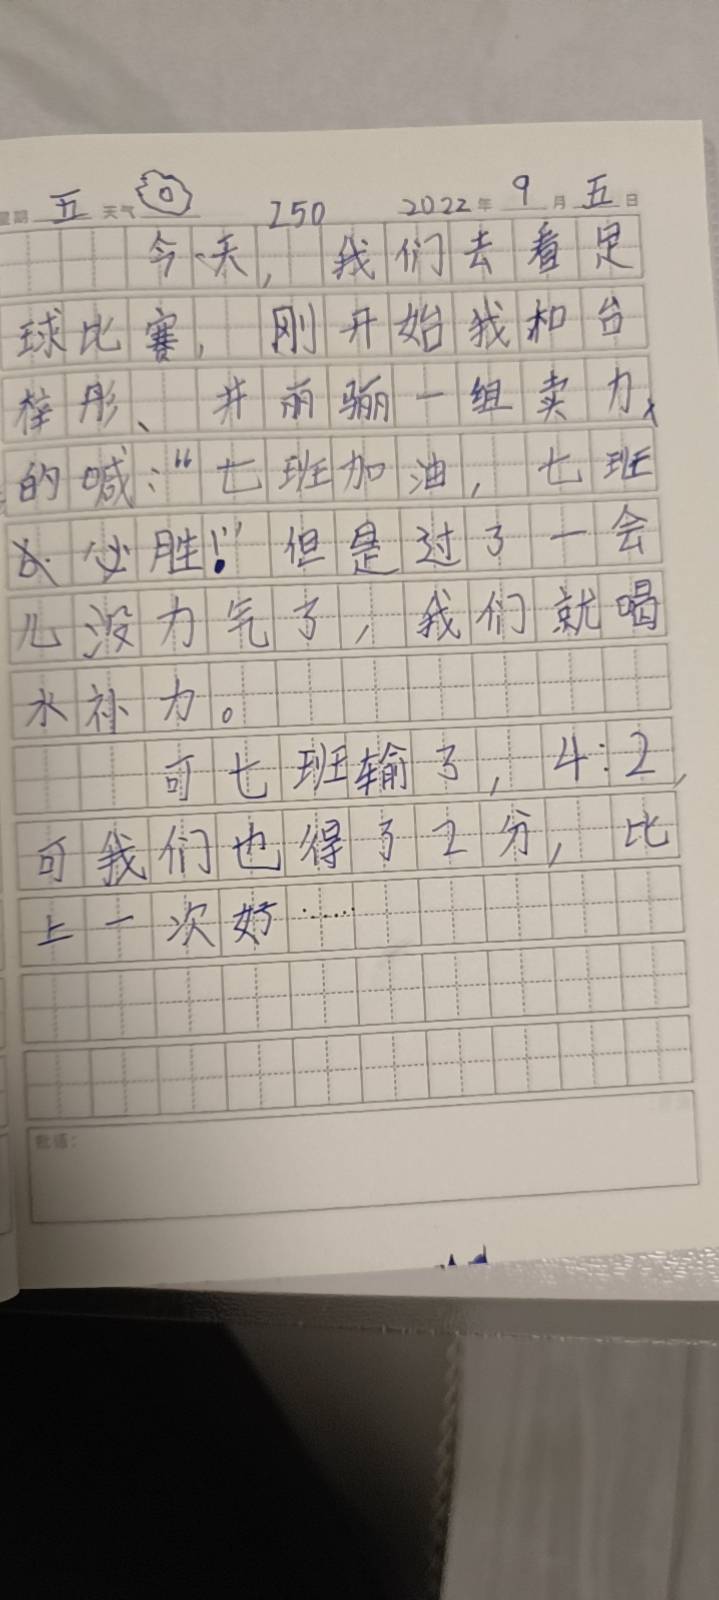 星期 五 天气 150 2022年 9 月 五 日
今天，我们去看足
球比赛，刚开始我和台
梓彤、井丽骊一组卖力
的喊：“七班加油，七班
必胜！”但是过了一会
儿没力气了，我们就喝
水补力。
可七班输了，4:2，
可我们也得了2分，比
上一次好……
批语：